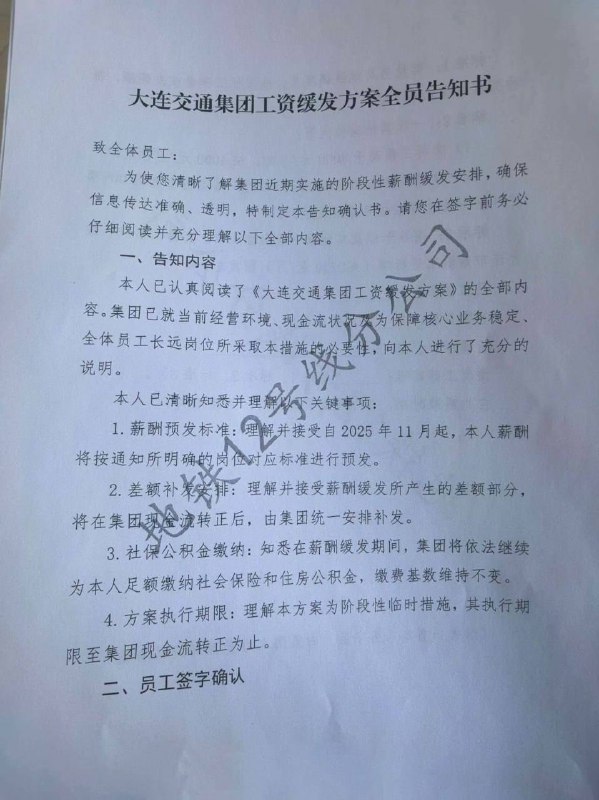 大连交通集团工资缓发方案全员告知书
致全体员工：
为使您清晰了解集团近期实施的阶段性薪酬缓发安排，确保
信息传达准确、透明，特制定本告知确认书。请您在签字前务必
仔细阅读并充分理解以下全部内容。
一、告知内容
本人已认真阅读了《大连交通集团工资缓发方案》的全部内
容。集团已就当前经营环境、现金流状况及为保障核心业务稳定、
全体员工长远岗位所采取本措施的必要性，向本人进行了充分的
说明。
本人已清晰知悉并理解以下关键事项：
1. 薪酬预发标准：理解并接受自 2025 年 11 月起，本人薪酬
将按通知所明确的岗位对应标准进行预发。
2. 差额补发安排：理解并接受薪酬缓发所产生的差额部分，
将在集团现金流转正后，由集团统一安排补发。
3. 社保公积金缴纳：知悉在薪酬缓发期间，集团将依法继续
为本人足额缴纳社会保险和住房公积金，缴费基数维持不变。
4. 方案执行期限：理解本方案为阶段性临时措施，其执行期
限至集团现金流转正为止。
二、员工签字确认
地铁12号线分公司